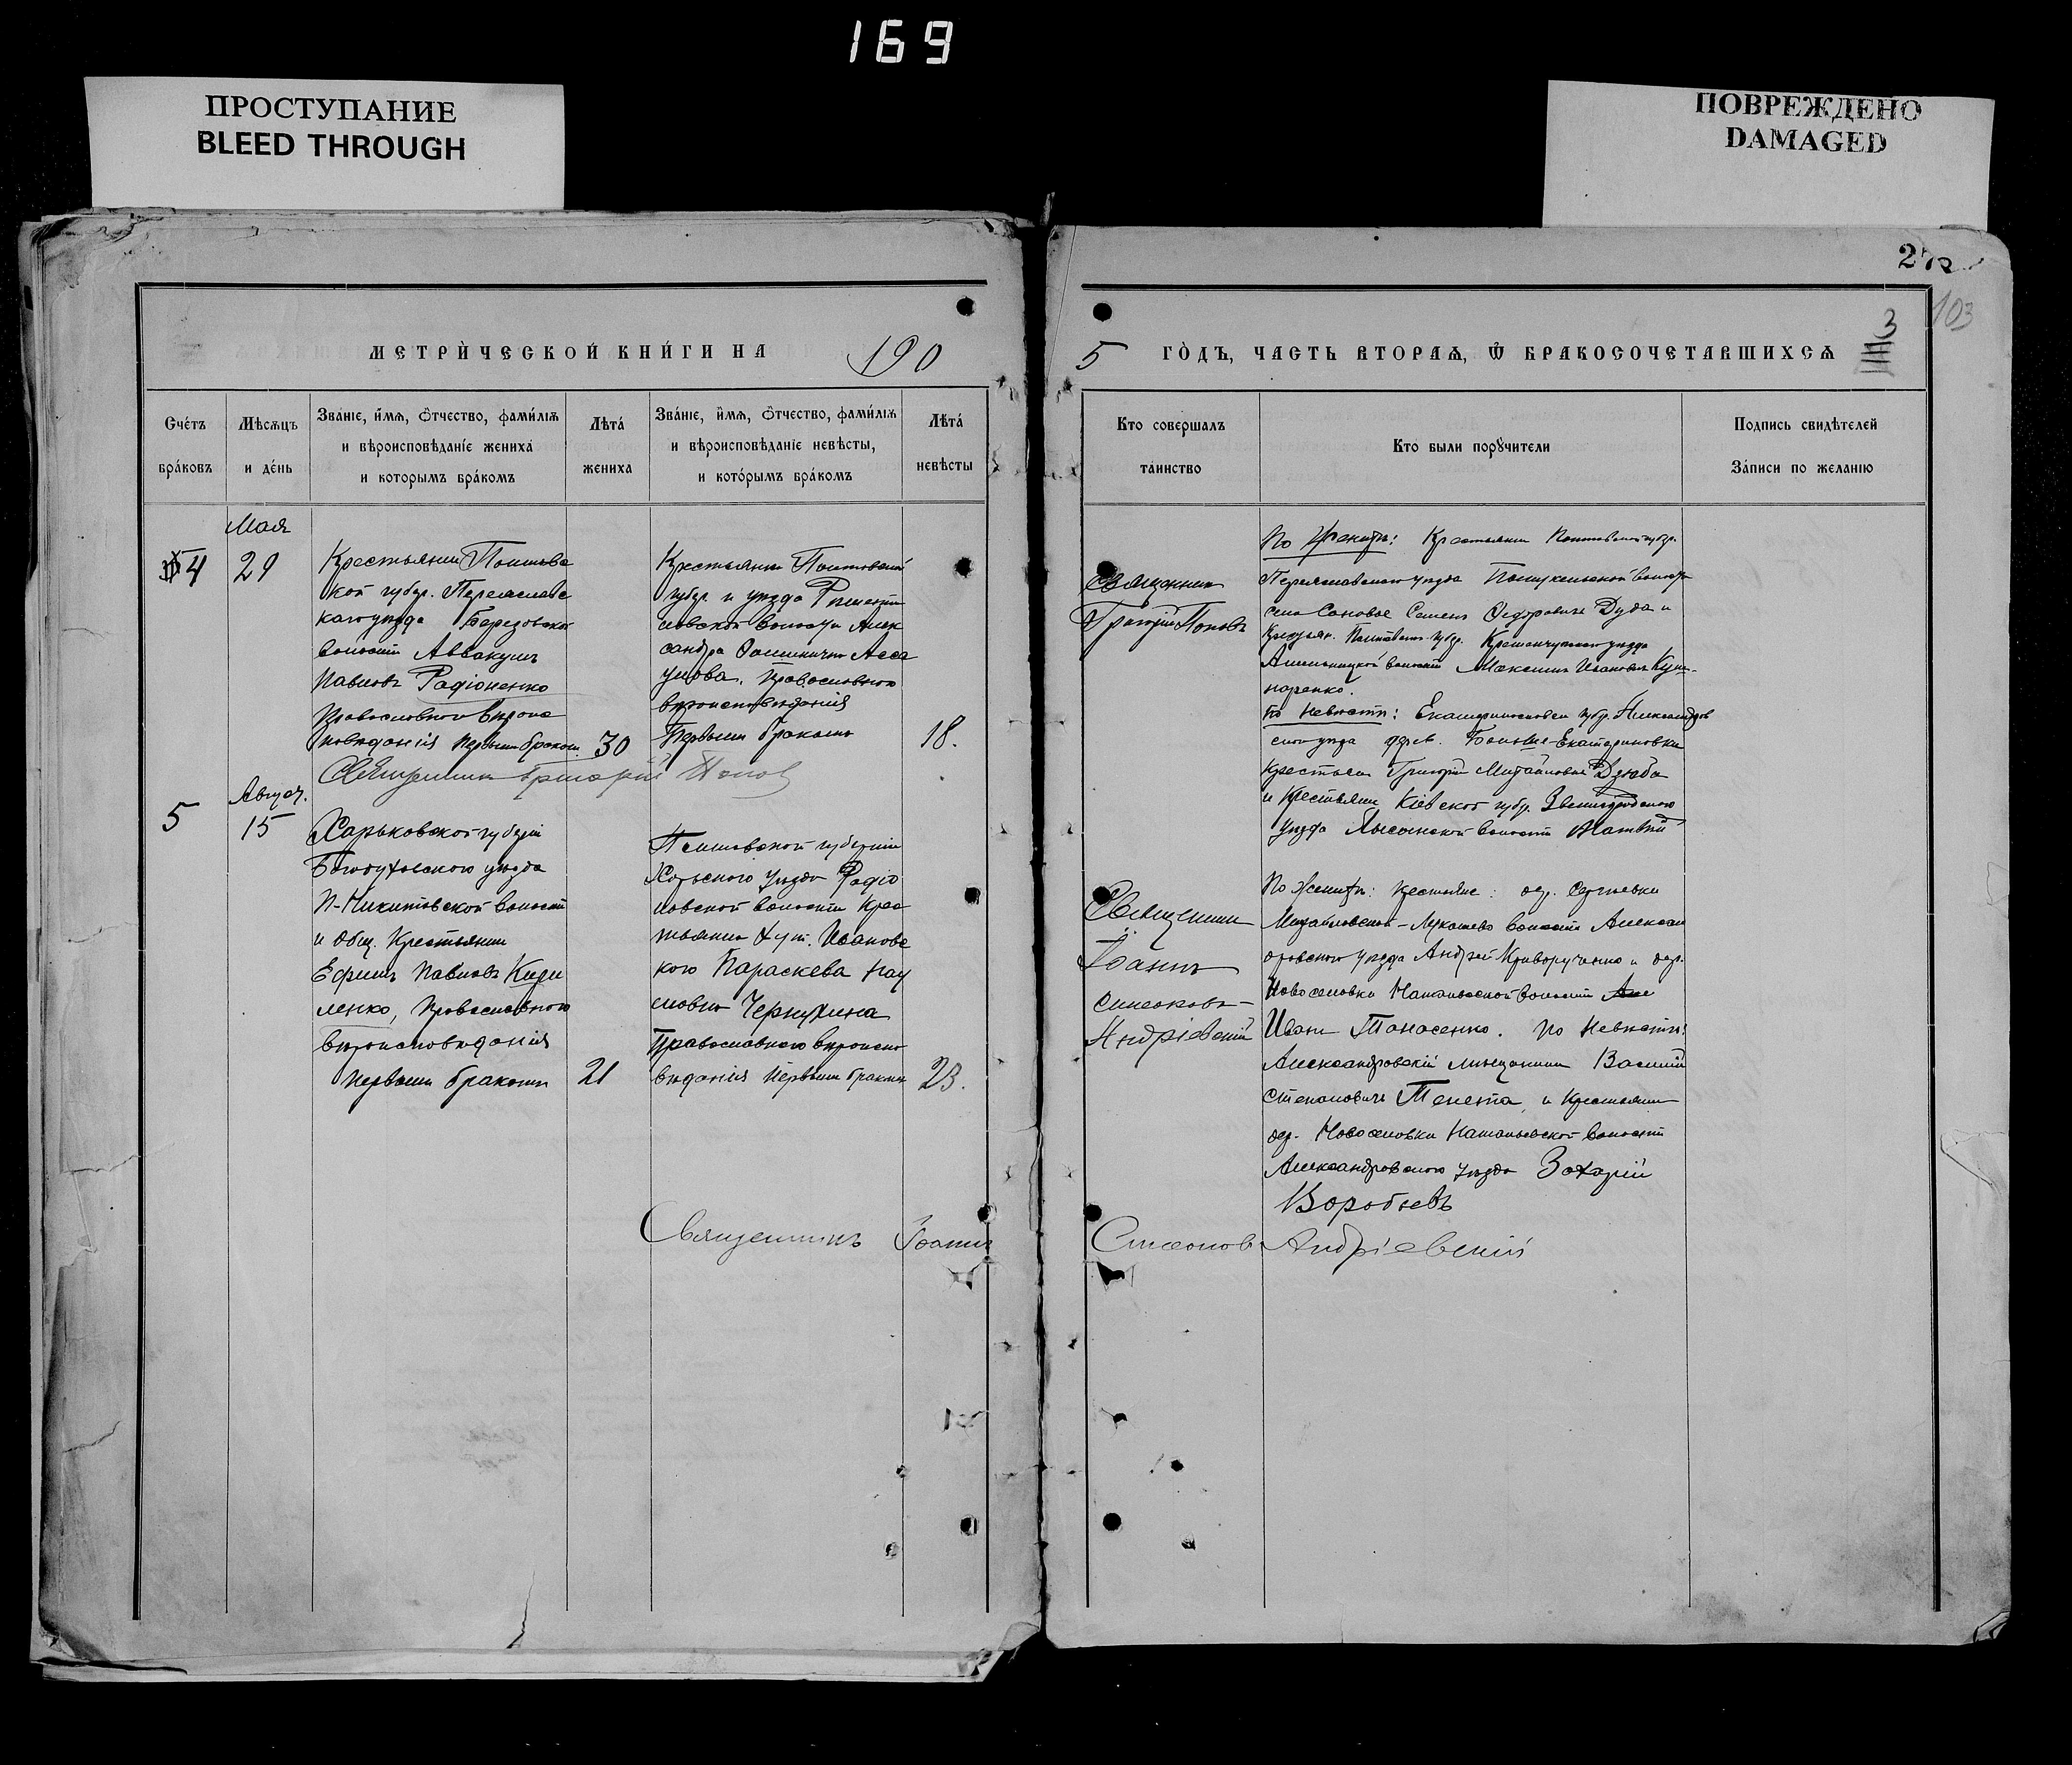 169
ПРОСТУПАНИЕ
BLEED THROUGH
ПОВРЕЖДЕНО
DAMAGED
103
3
МЕТРИ́ЧЕСКОЙ КНИ́ГИ НА 190
5 ГО́ДЪ, ЧАСТЬ ВТОРАѦ, Ѿ БРАКОСОЧЕТАВШИХСѦ
Сче́тъ бра́ковъ
Мѣсѧцъ и де́нь
Зва́нїе, и́мѧ, ѻ҆́тчество, фами́лїѧ
и вѣроисповѣ́данїе жениха̀
и которымъ бра́комъ
Лѣта́ жениха
Зва́нїе, и́мѧ, ѻ҆́тчество, фами́лїѧ
и вѣроисповѣ́данїе невѣ́сты,
и кото́рымъ бра́комъ
Лѣта́ невѣ́сты
Кто совершалъ
та́инство
Кто были порꙋчители
Подпись свидѣ́телей
За́писи по жела́нїю
Мая
4
29
Крестьянин Полтавс
кой губер. Переяславс
каго уезда Березовской
волости Аввакумъ
Павловъ Радіоненко
Православнаго вѣроис
повѣданія первым браком.
30
Крестьянка Полтавской
губер. и уѣзда
ловской волости Алек
сандра
Православнаго
вѣроисповѣданія
Первым бракомъ
18.
Священник Григорій Попов
Священник
Григорій Поповъ
По Женихѣ: Крестьянин Полтавской губер.
Переяславскаго уѣзда волости
села Семенъ Федоровичъ Дуда и
Крестьян. Полтавск. губер. Кременчугскаго уѣзда
волости Максимъ Ивановъ
наренко.
По невѣстѣ: Екатеринославск губер. Александров
скаго уѣзда дерев. Екатериновки
крестьян Григорій Михайловъ Дзюба
и Крестьянин Кіевской губер. Звенигородскаго
уѣзда Лысянской волости Матвѣй
Август.
5
15
Харьковской губерніи
Богодуховскаго уѣзда
Н-Никитовской волости
и общ. Крестьянин
Ефимъ Павловъ Кири
ленко, Православнаго
вѣроисповѣданія
первым браком
21
Полтавской губерніи
Хорольскаго уѣзда Радіо
новской волости Крес
тьянка хут. Ивановс
кого Параскева Нау
мовна Чернухина
Православнаго вѣроиспо
вѣданія первым браком
23.
Священник
Іоанн
Симеоновъ-
Андріевскій
По Женихѣ: крестьяне: дер. Сергѣевки
Михайловской-Лукашево волости Алексан
дровского уѣзда Андрей Криворученко и дер.
Новоселовки волости
Иван Танасенко. По Невѣстѣ:
Александровскій мѣщанин Василій
Степановичъ Тенета, и Крестьянин
дер. Новоселовки волости
Александровского уѣзда Захарій
Воробьевъ
Священникъ Іоаннъ Симеонов Андріевскій